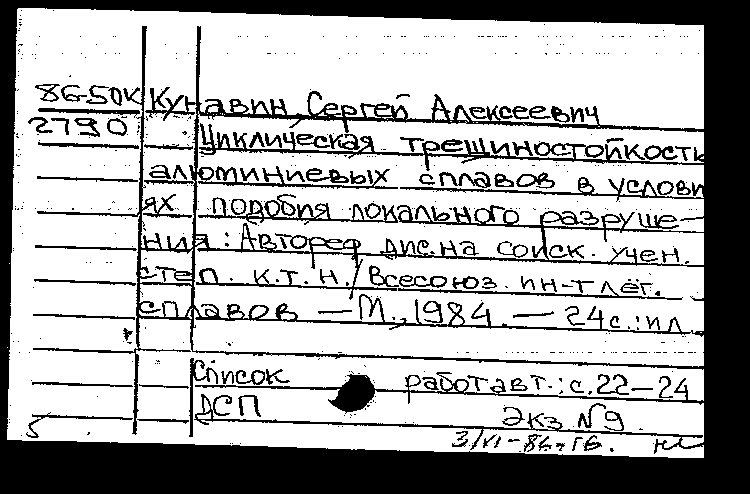 86-50к Кунавин, Сергей Алексеевич
2790 Циклическая трещиностойкость
алюминиевых сплавов в услови
ях подобия локального разруше-
ния: Автореф. дис. на соиск. учен.
степ. к.т.н./Всесоюз. ин-т лёг.
сплавов — М., 1984. — 24с.: ил.
Список работ авт.: с.22—24
ДСП Экз N9.
5 3/VI-86-